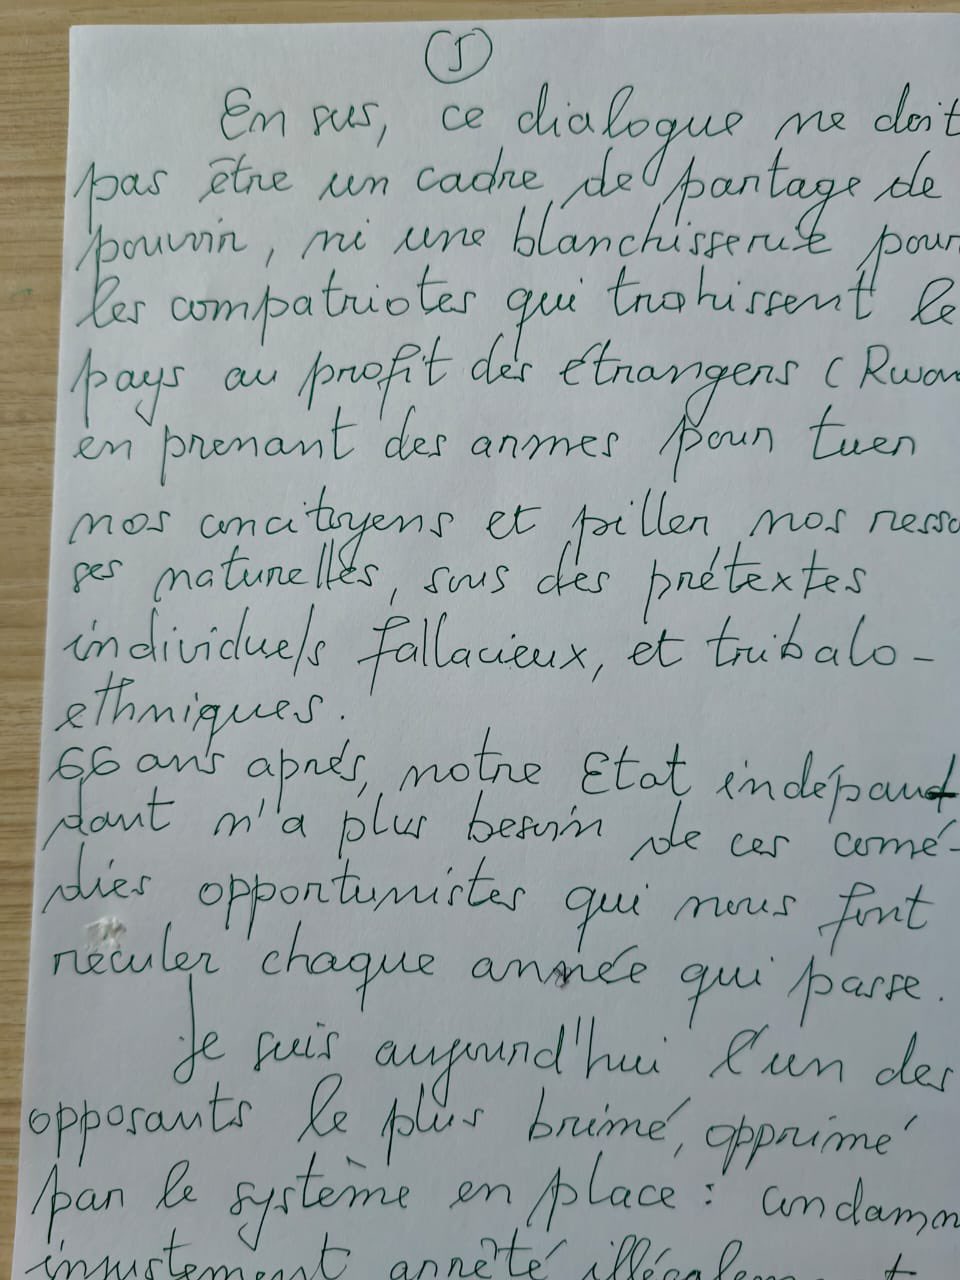 5
En sus, ce dialogue ne doit
pas être un cadre de partage de
pouvoir, ni une blanchisserie pour
les compatriotes qui trahissent le
pays au profit des étrangers (Rwan
en prenant des armes pour tuer
nos concitoyens et piller nos resso
ses naturelles, sous des prétextes
individuels fallacieux, et tribalo-
ethniques.
66 ans après, notre Etat indépen
dant n'a plus besoin de ces comé-
dies opportunistes qui nous font
réculer chaque année qui passe.
Je suis aujourd'hui l'un des
opposants le plus brimé, opprimé
par le système en place : condamn
injustement arrêté illégalement